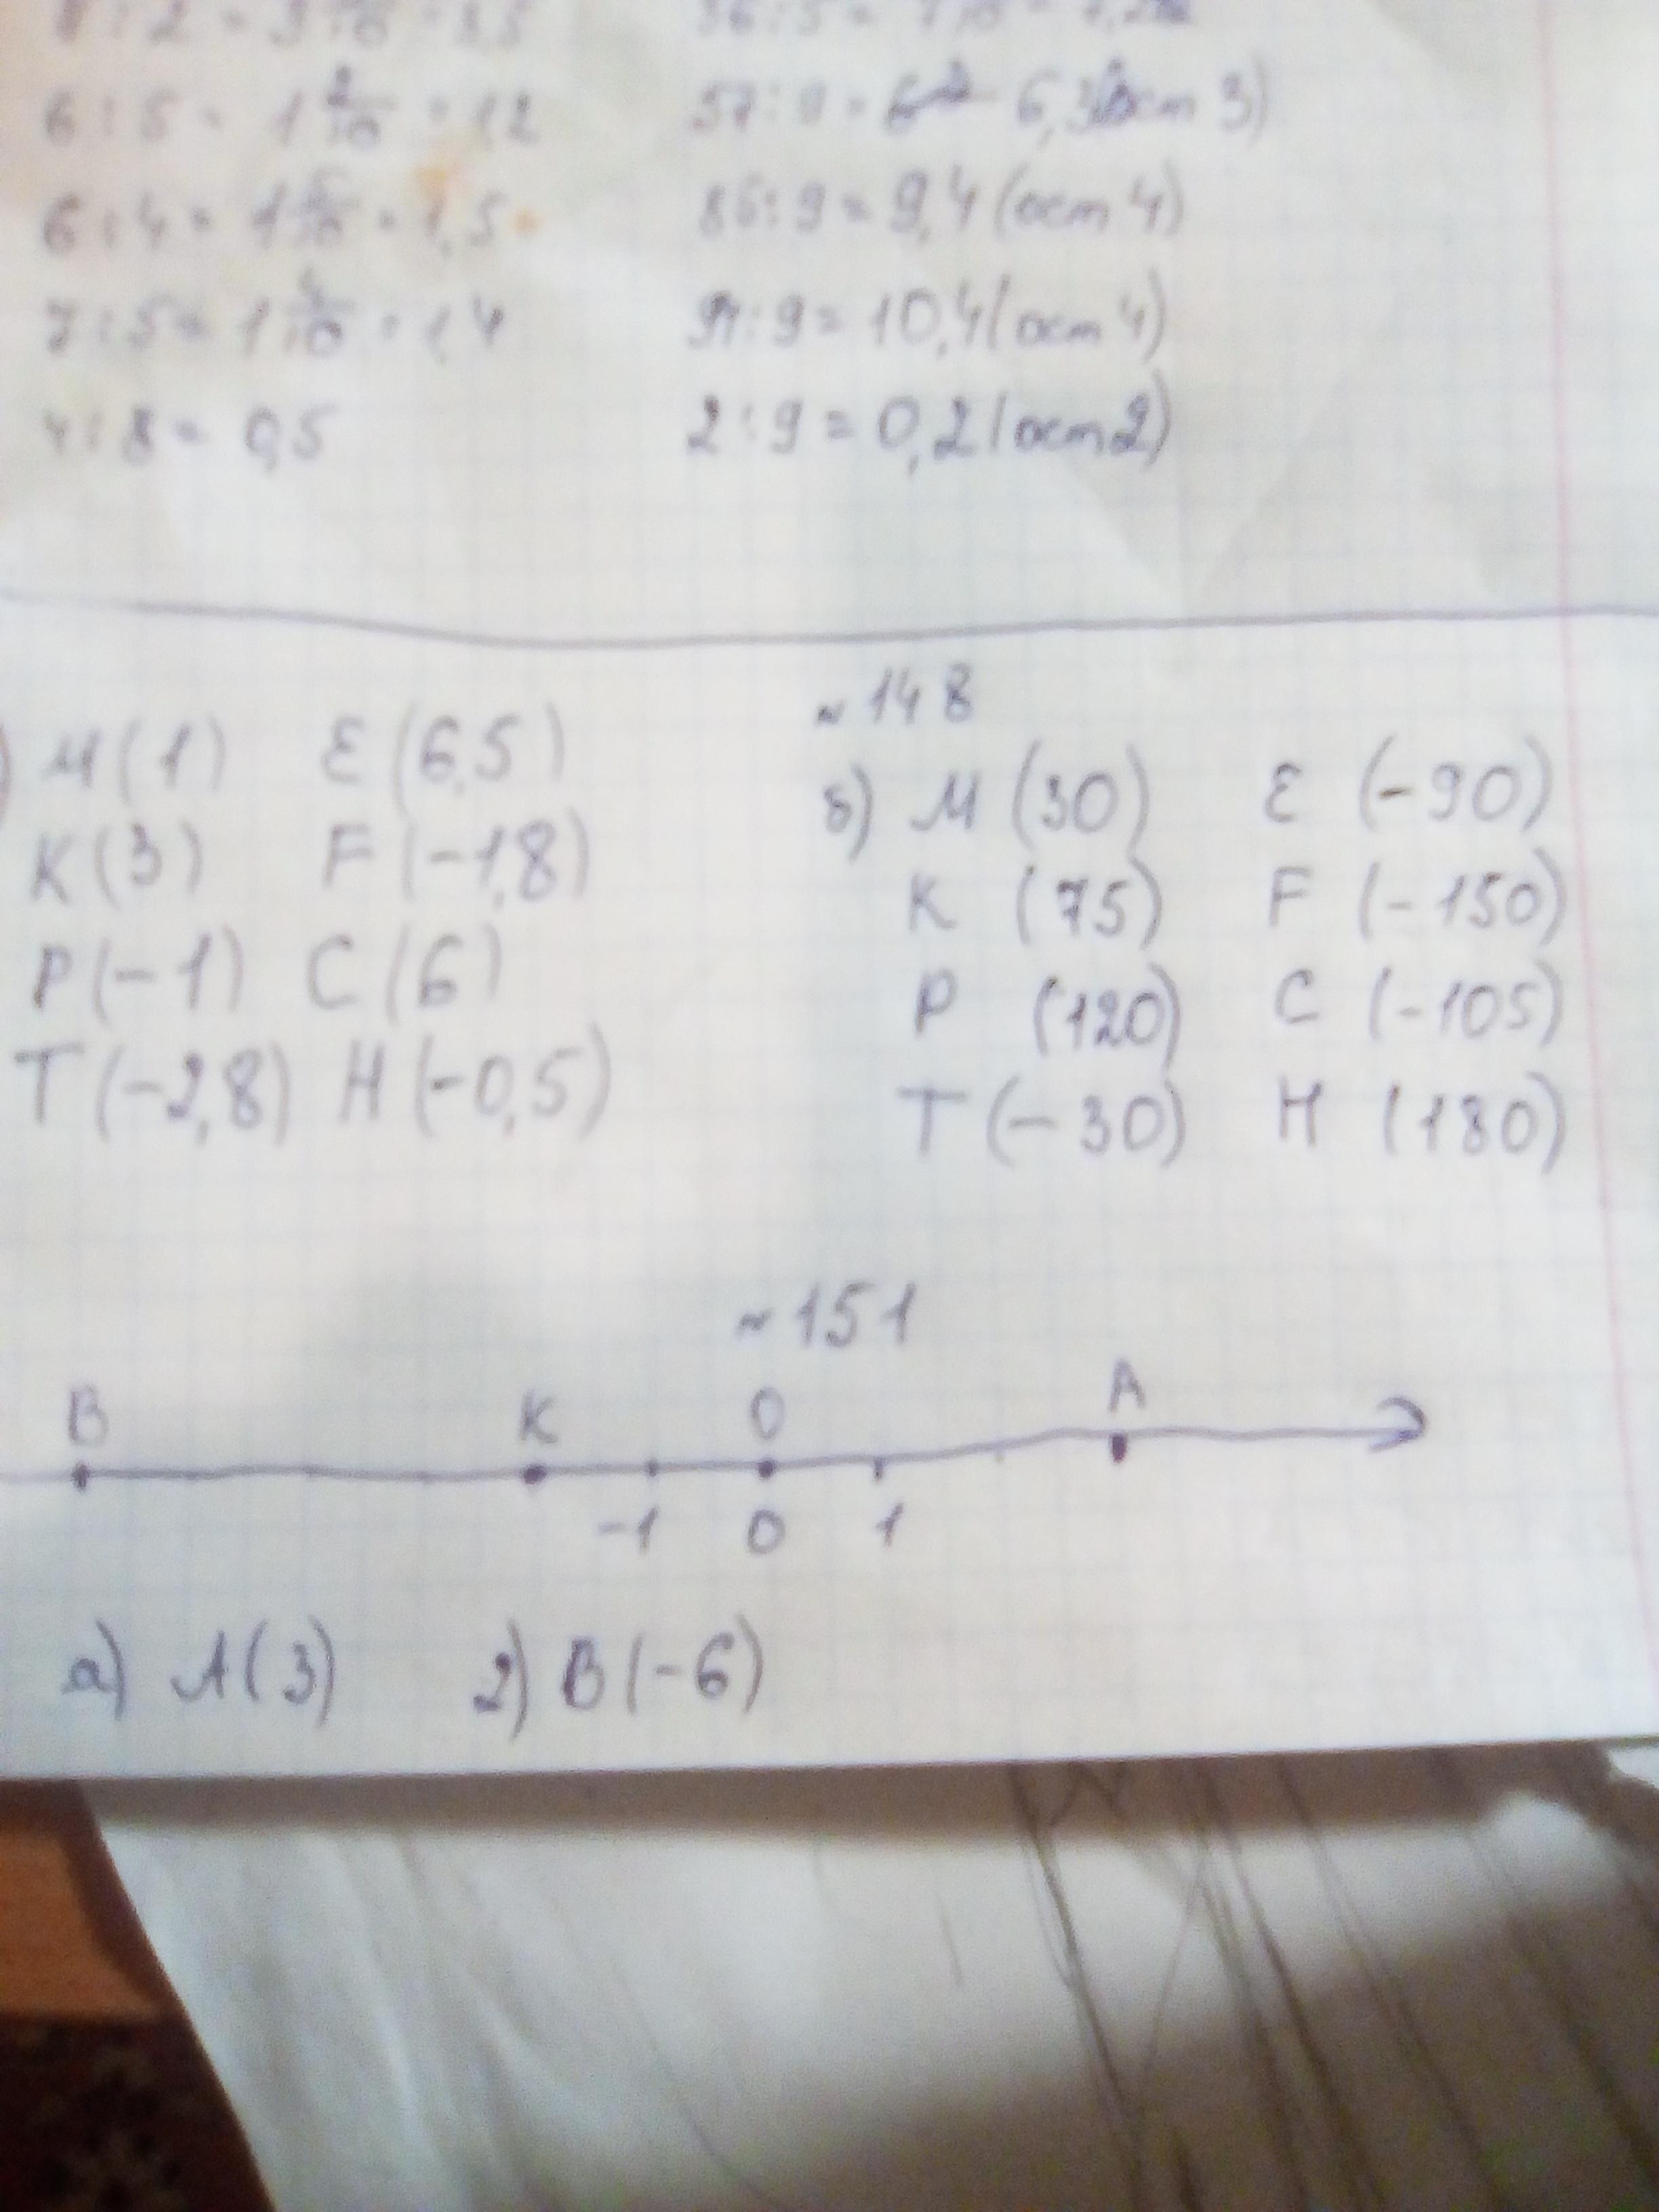 6 : 5 = 1 2/10 = 1,2
57 : 9 = 6,3 (ост 3)
6 : 4 = 1 5/10 = 1,5
86 : 9 = 9,4 (ост 4)
7 : 5 = 1 4/10 = 1,4
: 9 = 10,4 (ост 4)
4 : 8 = 0,5
2 : 9 = 0,2 (ост 2)
~148
) М(1) E(6,5)
K(3) F(-1,8)
P(-1) C(6)
T(-2,8) H(-0,5)
б) М (30) E (-90)
K (75) F (-150)
P (120) C (-105)
T (-30) H (180)
~151
B K 0 A
-1 0 1
а) A(3) 2) B(-6)